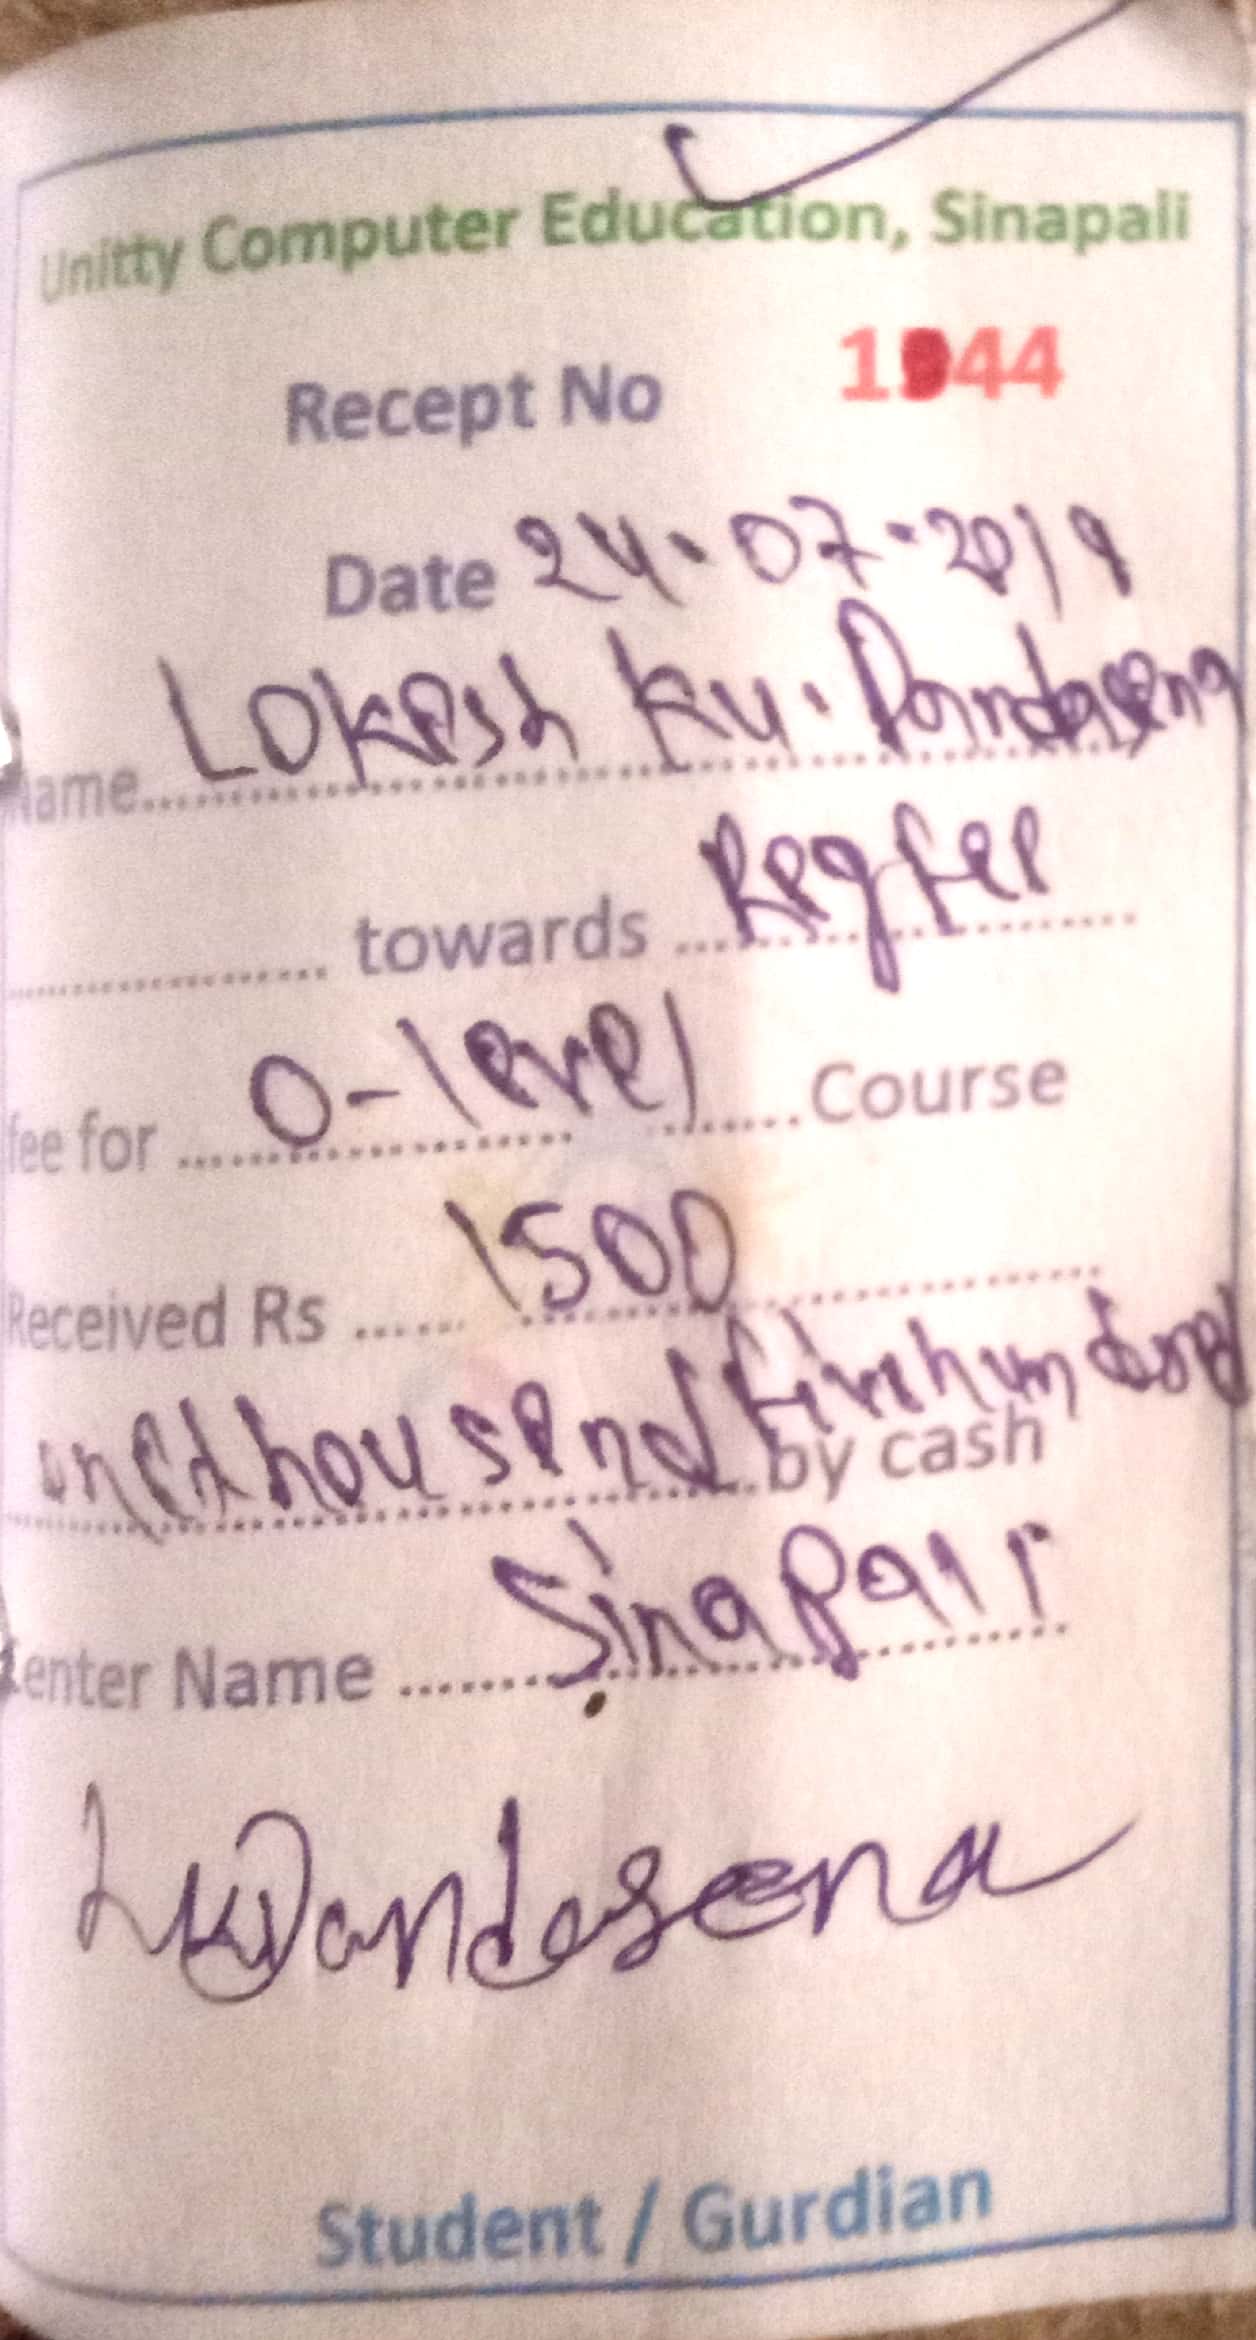 Unitty Computer Education, Sinapali
Recept No
Date 24.07.2019
Name Lokesh Ku. Dandasena
towards Reg fee
fee for O-level Course
Received Rs 1500
onethousend fivehundred
by cash
Center Name Sinapali
LKDandasena
Student / Gurdian